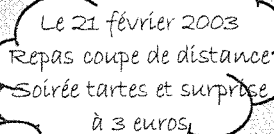 Le 21 février 2003
Repas coupe de distance
Soirée tartes et surprise
à 3 euros